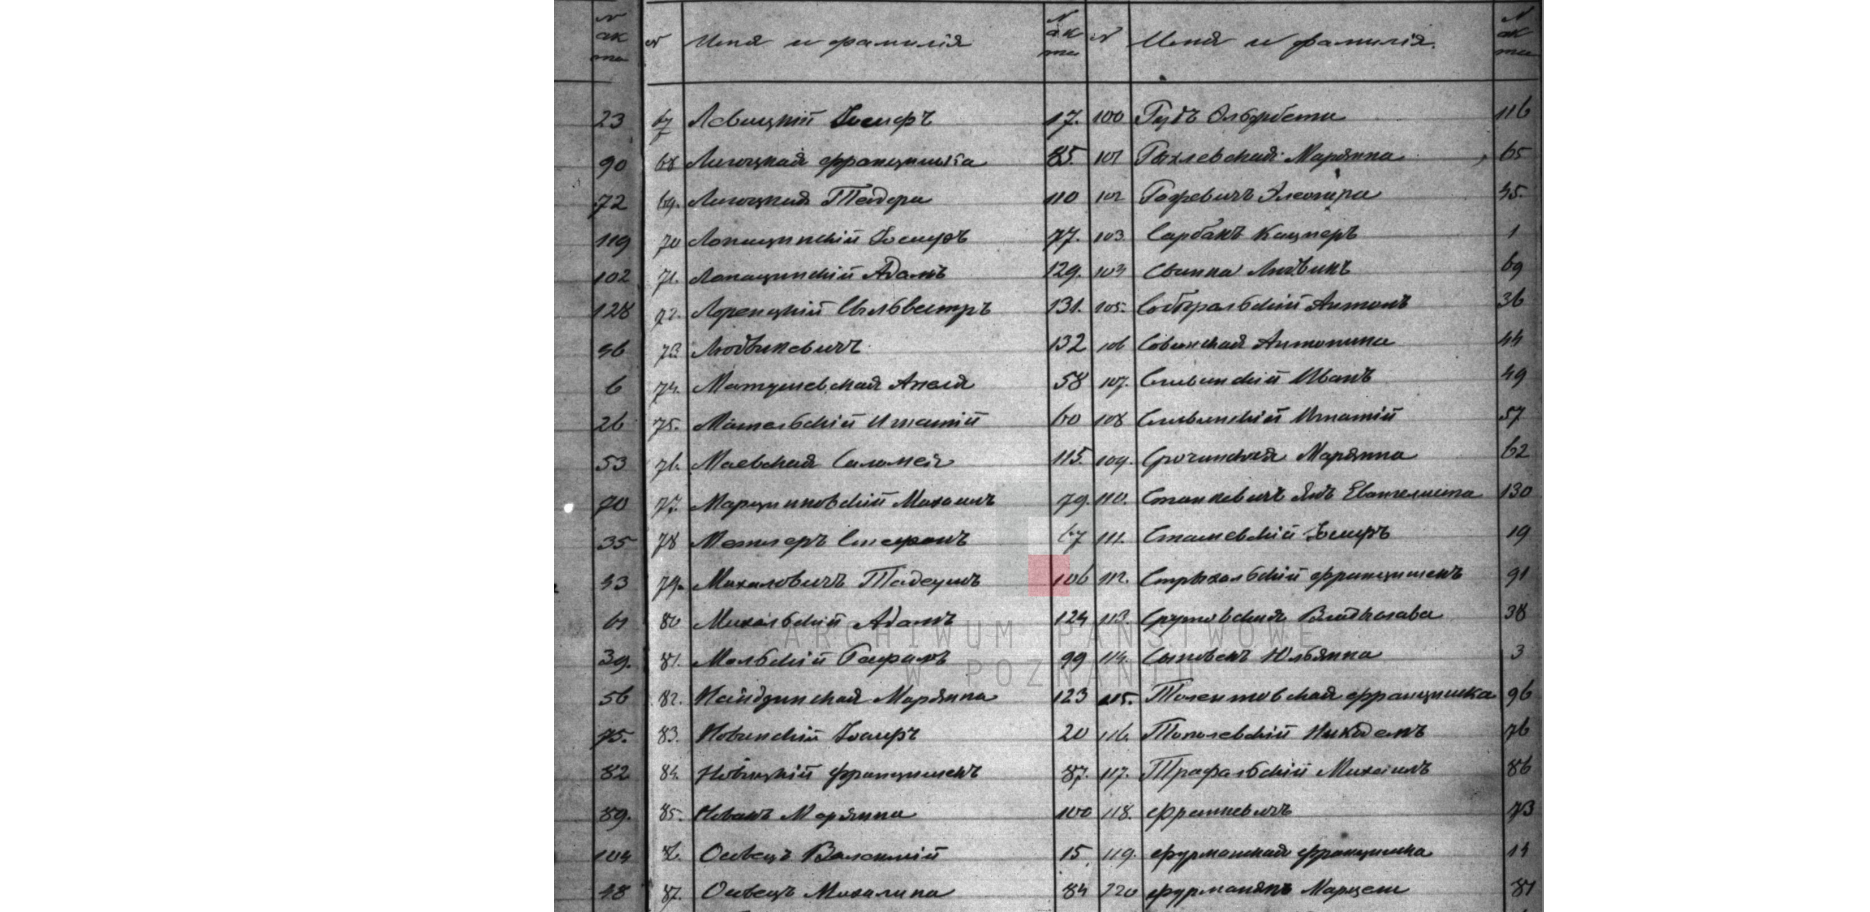 N акта № Имя и фамилія N акта № Имя и фамилія N акта
23 67 Левицкій Іосифъ 17. 100 Гудъ Эльзбета 116
90 68 Лигоцкая Францишка 85 101 Рахлевская Маріянна 65
72 69. Лигоцкая Теодора 110 102 Элеонора 45.
119 70 Лопацинскій Іосифъ 77. 103 Сарбакъ Кацперъ 1
102 71. Лопацинскій Адамъ 129. 104 Свинка Людвикъ 69
128 72. Лоренцкій Сыльвестръ 131. 105. Собѣральскій Антонъ 36
46 73 Людвикевичъ 132 106 Совинская Антонина 44
6 74. Матушевская Анеля 58 107. Сливинскій Иванъ 49
26 75. Мательскій Игнатій 60 108 Сливинскій Игнатій 57
53 76. Маевская Саломея 115. 109. Срочинская Маріянна 62
70 77. Марциновскій Михаилъ 79. 110. Станкевичъ Янъ Евангелиста 130
35 78 Метлеръ Стефанъ 67 111. Сташевскій Іосифъ 19
43 79. Михаловичъ Тадеушъ 106 112. Стрыхальскій Францишекъ 91
61 80 Михальскій Адамъ 124 113. Владислава 38
39. 81. Мельскій Гаврилъ 99 114. Сыповскъ Юльянна 3
56 82. Найдзинская Маріянна 123 115. Толентовская Францишка 96
75. 83. Новинскій Іосифъ 20 116. Тополевскій Никодемъ 76
82 84. Новицкій Францишекъ 87. 117. Трафальскій Михаилъ 86
89. 85. Новакъ Маріянна 100 118. Франкевичъ 73
104 86. Осивецъ Валентій 15 119. Фурманская Францишка 14
18 87. Осивецъ Михалина 84 120 Фурманякъ Марцели 81
ARCHIWUM PAŃSTWOWE
W POZNANIU